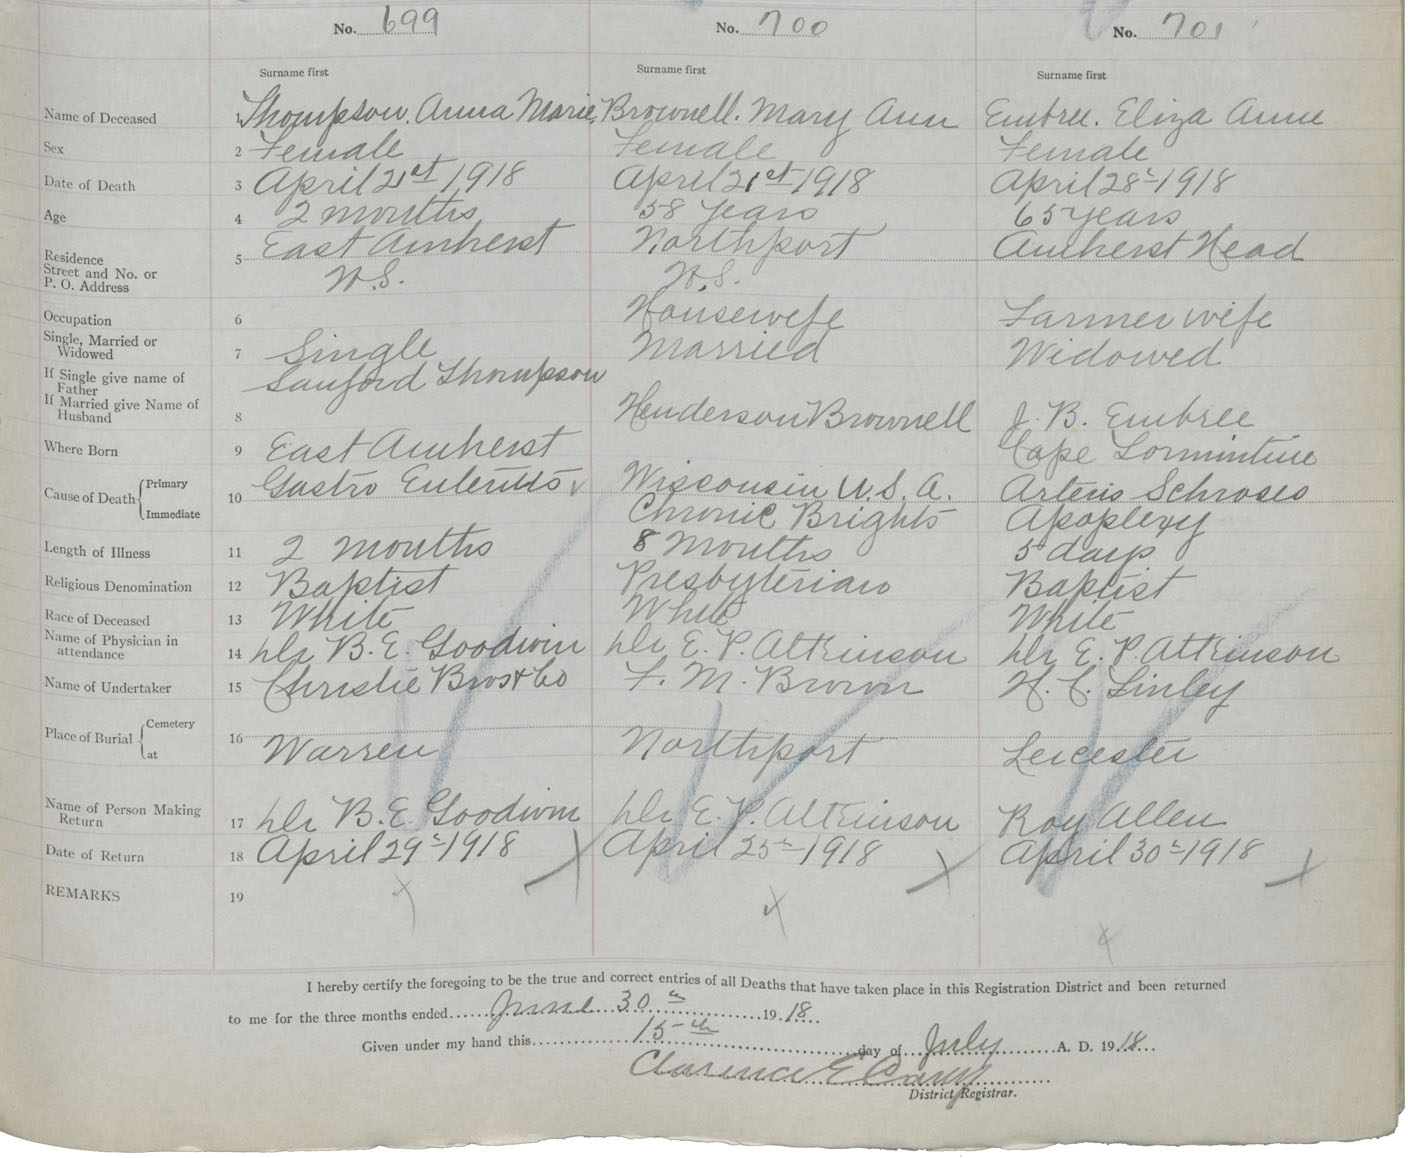 No. 699 No. 700 No. 701
Surname first Surname first Surname first
Name of Deceased 1 Thompson. Anna Marie. Brownell. Mary Ann Embree. Eliza Anne
Sex 2 Female Female Female
Date of Death 3 April 21st 1918 April 21st 1918 April 28th 1918
Age 4 2 months 58 years 65 years
Residence Street and No. or P. O. Address 5 East Amherst N.S. Northport N.S. Amherst Head
Occupation 6 Housewefe Farmer wife
Single, Married or Widowed 7 Single Married Widowed
If Single give name of Father Sanford Thompson
If Married give Name of Husband 8 Henderson Brownell J. B. Embree
Where Born 9 East Amherst Cape Tormintine
Cause of Death Primary 10 Gastro Enteritis Wisconsin U.S.A. Arterio Schroses
Immediate Chronic Brights Apoplexy
Length of Illness 11 2 months 8 months 5 days
Religious Denomination 12 Baptist Presbyterian Baptist
Race of Deceased 13 White White White
Name of Physician in attendance 14 Dr B. E. Goodwin Dr E. P. Atkinson Dr E. P. Atkinson
Name of Undertaker 15 Christie Bros & Co F. M. Brown H. C. Linley
Place of Burial Cemetery at 16 Warren Northport Leicester
Name of Person Making Return 17 Dr B. E. Goodwin Dr E. P. Atkinson Roy Allen
Date of Return 18 April 29th 1918 April 25th 1918 April 30th 1918
REMARKS 19
I hereby certify the foregoing to be the true and correct entries of all Deaths that have taken place in this Registration District and been returned
to me for the three months ended June 30th 1918
Given under my hand this 15th day of July A. D. 1918.
Clarence E
District Registrar.